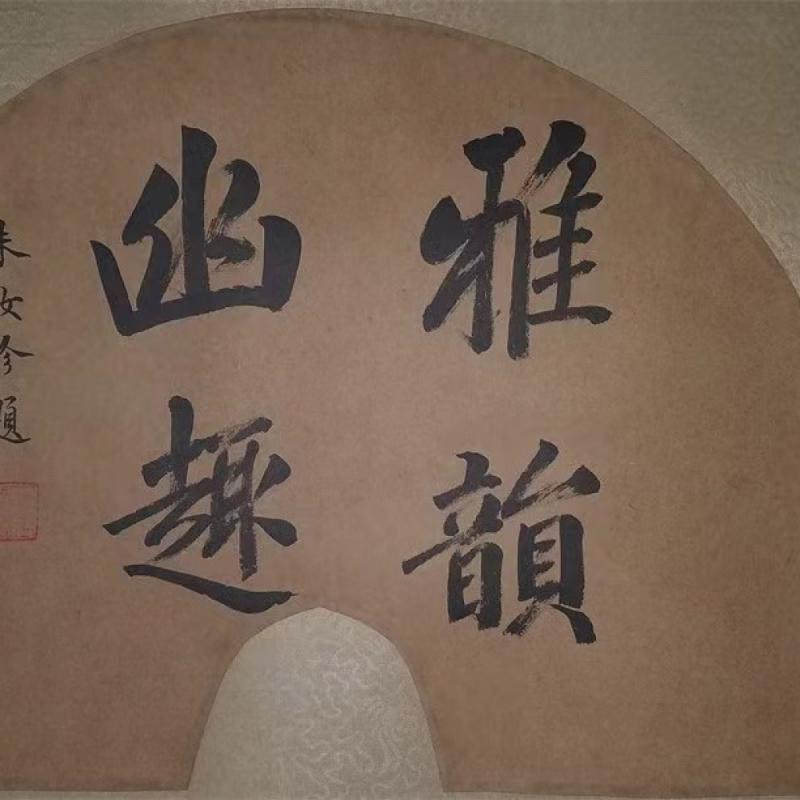 雅韻
幽趣
朱汝珍題